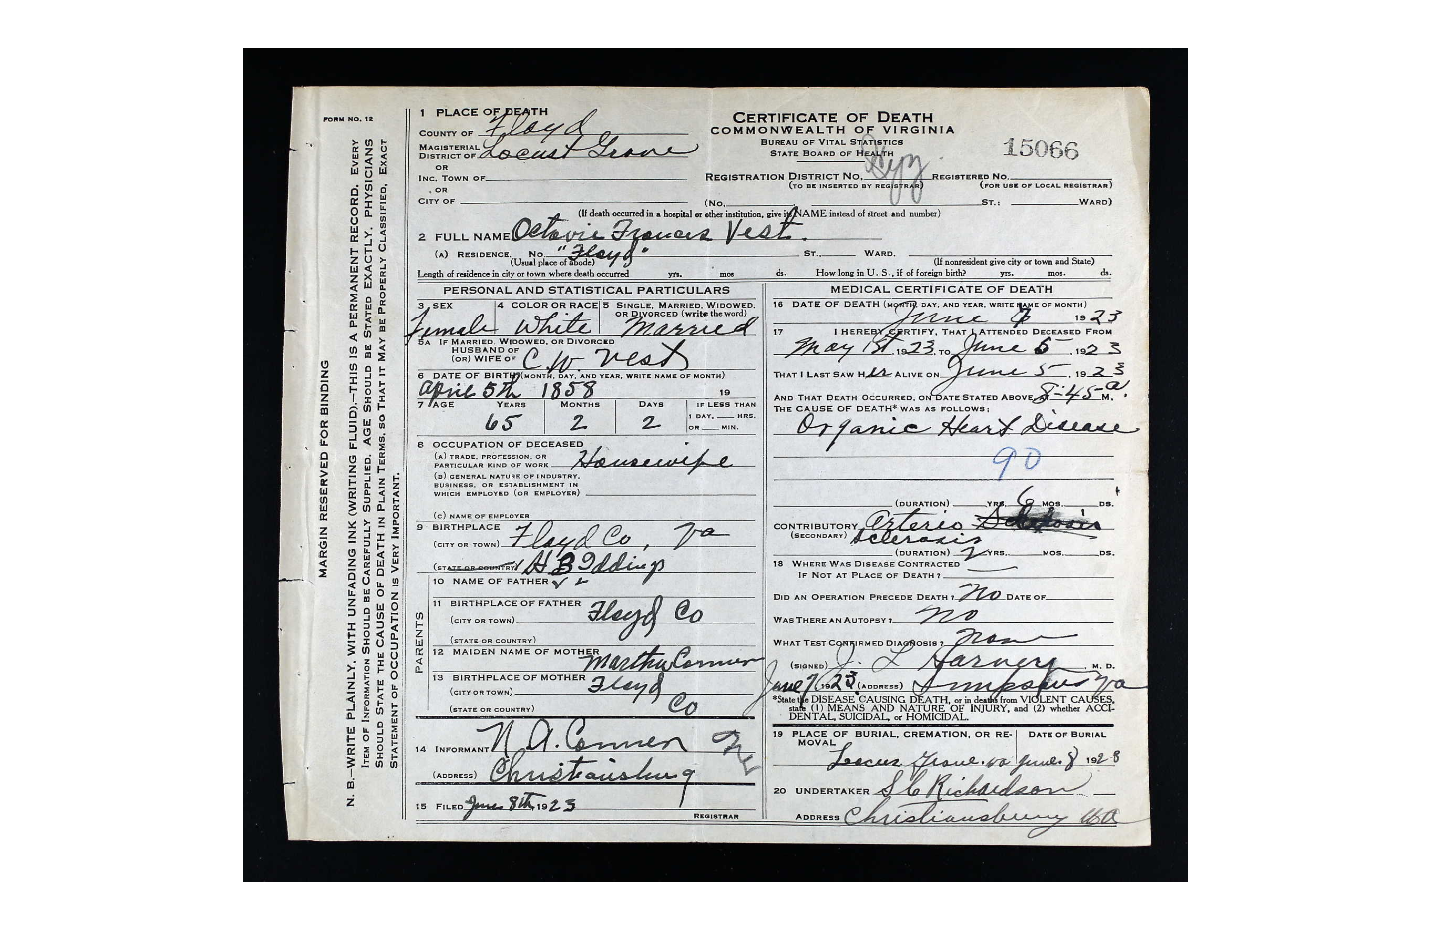 FORM NO. 12
MARGIN RESERVED FOR BINDING
N. B.—WRITE PLAINLY, WITH UNFADING INK (WRITING FLUID).—THIS IS A PERMANENT RECORD. EVERY
ITEM OF INFORMATION SHOULD BE CAREFULLY SUPPLIED. AGE SHOULD BE STATED EXACTLY. PHYSICIANS
SHOULD STATE THE CAUSE OF DEATH IN PLAIN TERMS, SO THAT IT MAY BE PROPERLY CLASSIFIED. EXACT
STATEMENT OF OCCUPATION IS VERY IMPORTANT.
1 PLACE OF DEATH
COUNTY OF Floyd
MAGISTERIAL
DISTRICT OF Locust Grove
OR
INC. TOWN OF
OR
CITY OF
CERTIFICATE OF DEATH
COMMONWEALTH OF VIRGINIA
BUREAU OF VITAL STATISTICS
STATE BOARD OF HEALTH
15066
REGISTRATION DISTRICT NO. REGISTERED NO.
(TO BE INSERTED BY REGISTRAR) (FOR USE OF LOCAL REGISTRAR)
(NO. ST.; WARD)
(If death occurred in a hospital or other institution, give its NAME instead of street and number)
2 FULL NAME Octavie Frances Vest.
(A) RESIDENCE. No. "Floyd" ST., WARD.
(Usual place of abode) (If nonresident give city or town and State)
Length of residence in city or town where death occurred yrs. mos ds. How long in U. S., if of foreign birth? yrs. mos. ds.
PERSONAL AND STATISTICAL PARTICULARS
3 SEX 4 COLOR OR RACE 5 SINGLE, MARRIED, WIDOWED,
OR DIVORCED (write the word)
Female White Married
5A IF MARRIED, WIDOWED, OR DIVORCED
HUSBAND OF
(OR) WIFE OF C. W. Vest
6 DATE OF BIRTH (MONTH, DAY, AND YEAR, WRITE NAME OF MONTH)
April 5th 1858 19
7 AGE YEARS MONTHS DAYS IF LESS THAN
1 DAY, HRS.
65 2 2 OR MIN.
8 OCCUPATION OF DECEASED
(A) TRADE, PROFESSION, OR
PARTICULAR KIND OF WORK Housewife
(B) GENERAL NATURE OF INDUSTRY,
BUSINESS, OR ESTABLISHMENT IN
WHICH EMPLOYED (OR EMPLOYER)
(C) NAME OF EMPLOYER
9 BIRTHPLACE
(CITY OR TOWN) Floyd Co, Va
(STATE OR COUNTRY) H B Iddings
PARENTS
10 NAME OF FATHER
11 BIRTHPLACE OF FATHER
(CITY OR TOWN) Floyd Co
(STATE OR COUNTRY)
12 MAIDEN NAME OF MOTHER
Martha Conner
13 BIRTHPLACE OF MOTHER
(CITY OR TOWN) Floyd
(STATE OR COUNTRY) Co
14 INFORMANT N. A. Conner
(ADDRESS) Christiansburg
15 FILED June 8th, 1923
REGISTRAR
MEDICAL CERTIFICATE OF DEATH
16 DATE OF DEATH (MONTH, DAY, AND YEAR, WRITE NAME OF MONTH)
June 7 1923
17 I HEREBY CERTIFY, THAT I ATTENDED DECEASED FROM
May 1st, 1923, TO June 5, 1923
THAT I LAST SAW Her ALIVE ON June 5, 1923
AND THAT DEATH OCCURRED, ON DATE STATED ABOVE, 8-45-a M.
THE CAUSE OF DEATH* WAS AS FOLLOWS:
Organic Heart Disease
90
(DURATION) YRS. 6 MOS. DS.
CONTRIBUTORY Arterio
(SECONDARY) Sclerosis
(DURATION) 2 YRS. MOS. DS.
18 WHERE WAS DISEASE CONTRACTED
IF NOT AT PLACE OF DEATH?
DID AN OPERATION PRECEDE DEATH? No DATE OF
WAS THERE AN AUTOPSY? No
WHAT TEST CONFIRMED DIAGNOSIS? None
(SIGNED) J. L Harvey, M. D.
June 7, 1923, (ADDRESS) Simpsons Va
*State the DISEASE CAUSING DEATH, or in deaths from VIOLENT CAUSES,
state (1) MEANS AND NATURE OF INJURY, and (2) whether ACCI-
DENTAL, SUICIDAL, or HOMICIDAL.
19 PLACE OF BURIAL, CREMATION, OR RE- DATE OF BURIAL
MOVAL
Locus Grove. va June. 8 1923
20 UNDERTAKER S C Richardson
ADDRESS Christiansburg Va